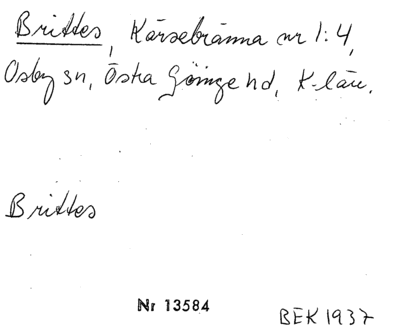 Brittes, Kärsebränna nr 1:4,
Osby sn, Östra Göinge hd, K-län.
Brittes
Nr 13584
BEK 1937